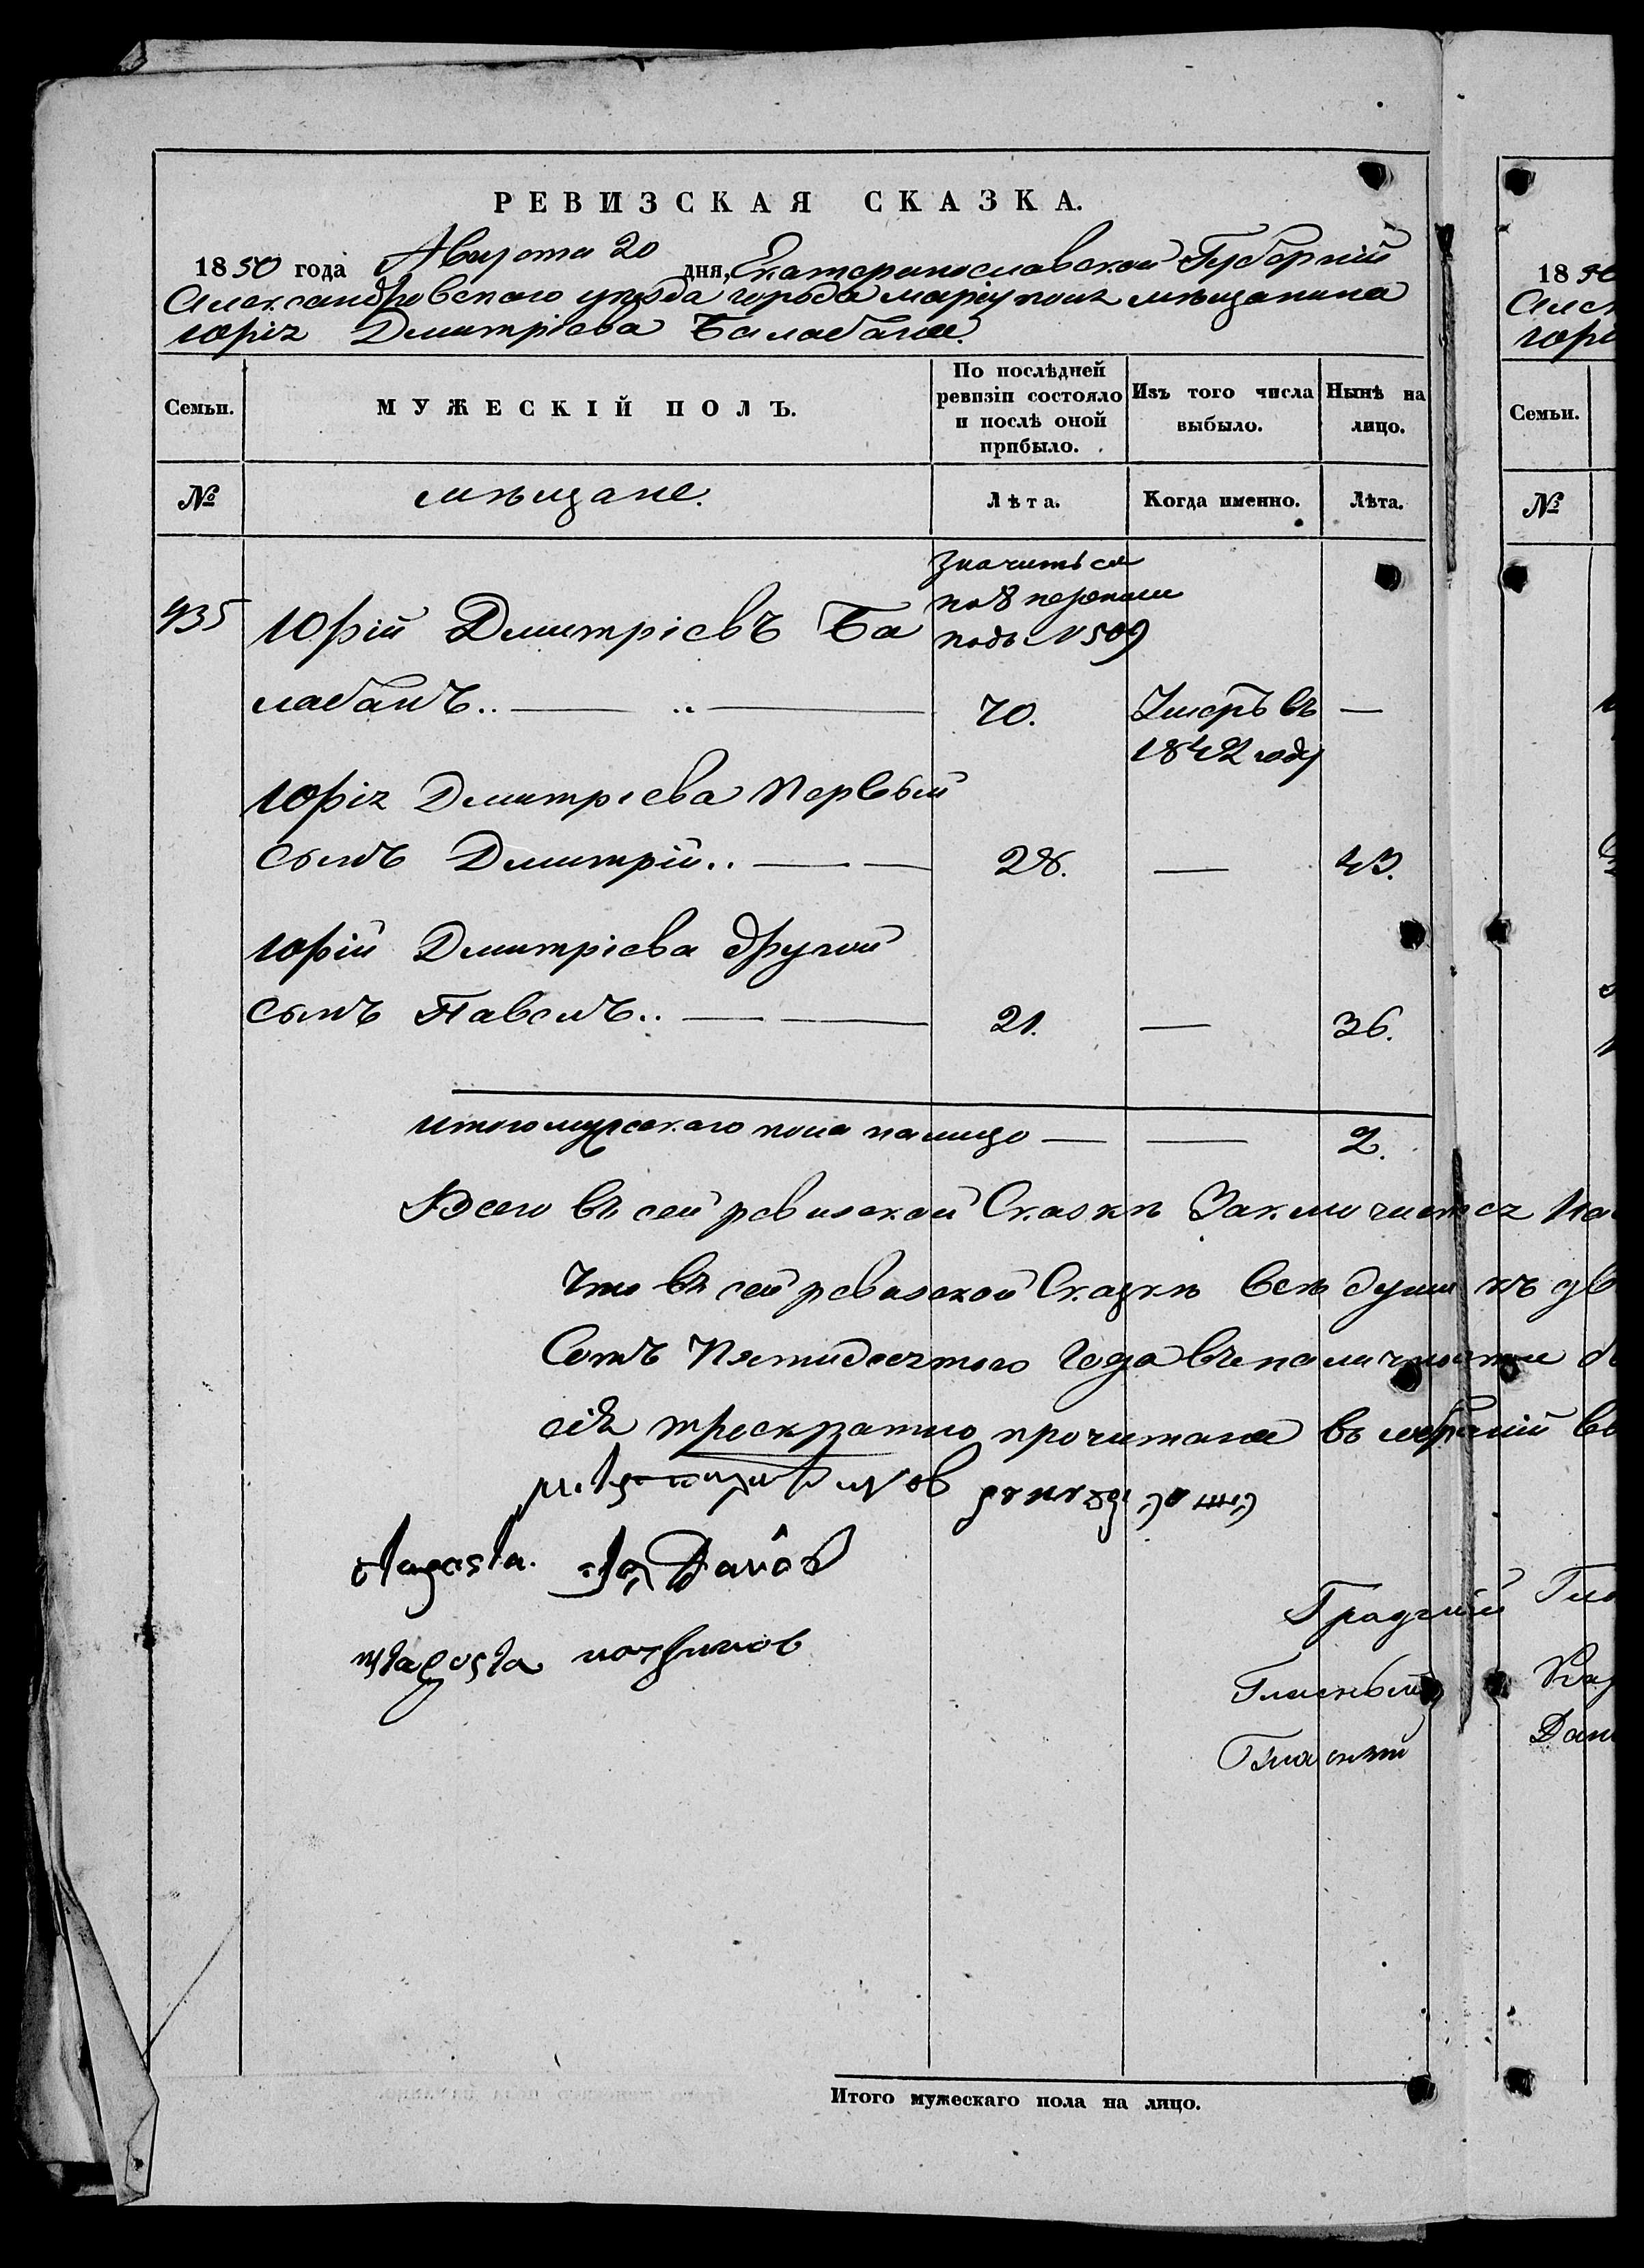 РЕВИЗСКАЯ СКАЗКА.
1850 года Августа 20 дня, Екатеринославской Губерній
Александровского уѣзда города маріуполя мѣщанина
юрія Дмитріева Балабана.
Семьи.
МУЖЕСКІЙ ПОЛЪ.
По послѣдней ревизіи состояло и послѣ оной прибыло.
Изъ того числа выбыло.
Нынѣ на лицо.
№
мѣщане.
Лѣта.
Когда именно.
Лѣта.
значиться
по 8 переписи
подъ N 509
435 Юрій Дмитріевъ Ба
лабанъ.. 70. Умеръ въ —
1842 году
Юрія Дмитріева Первый
сынъ Дмитрій.. 28. — 43.
Юрій Дмитріева другой
сынъ Павелъ.. 21. — 36.
Итого мужскаго пола налицо — — 2.
Всего въ сей ревизской Сказкѣ Заключается На
Что въ сей ревизской Сказкѣ всѣ души къ дв
Сотъ Пятидесятого Года въ наличности
сія троекратно прочитана въ собраній
Градскій
Гласный
Гласный
Итого мужескаго пола на лицо.
1850
Алек
юрі
Семьи.
№